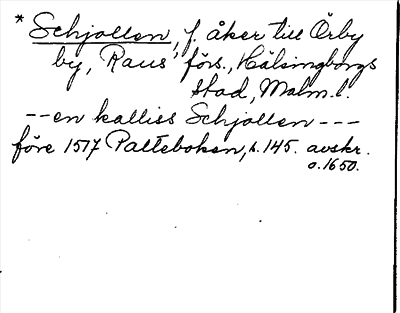 * Schjollen, f. åker till Örby
by, Raus förs., Hälsingborgs
stad, Malm.l.
-- en kalliss Schjollen ---
före 1517 Palteboken, s. 145. avskr.
o. 1650.